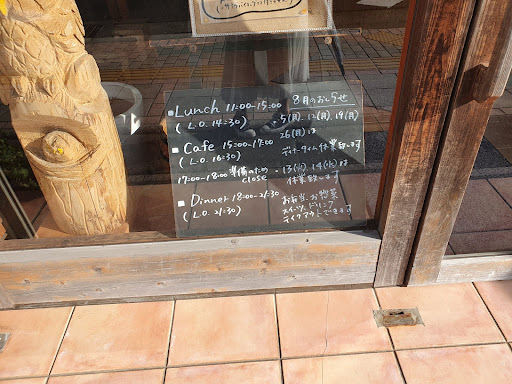 Lunch 11:00-15:00
(L.O. 14:30)
Cafe 15:00-17:00
(L.O. 16:30)
17:00-18:00 準備のため
close
Dinner 18:00-21:30
(L.O. 21:30)
8月のおしらせ
・5(月)、12(月)、19(月)
26(月)は
ディナータイム休業致します
・13(火)、14(水)は
休業致します
お弁当、お惣菜
スイーツ、ドリンク
テイクアウトできます